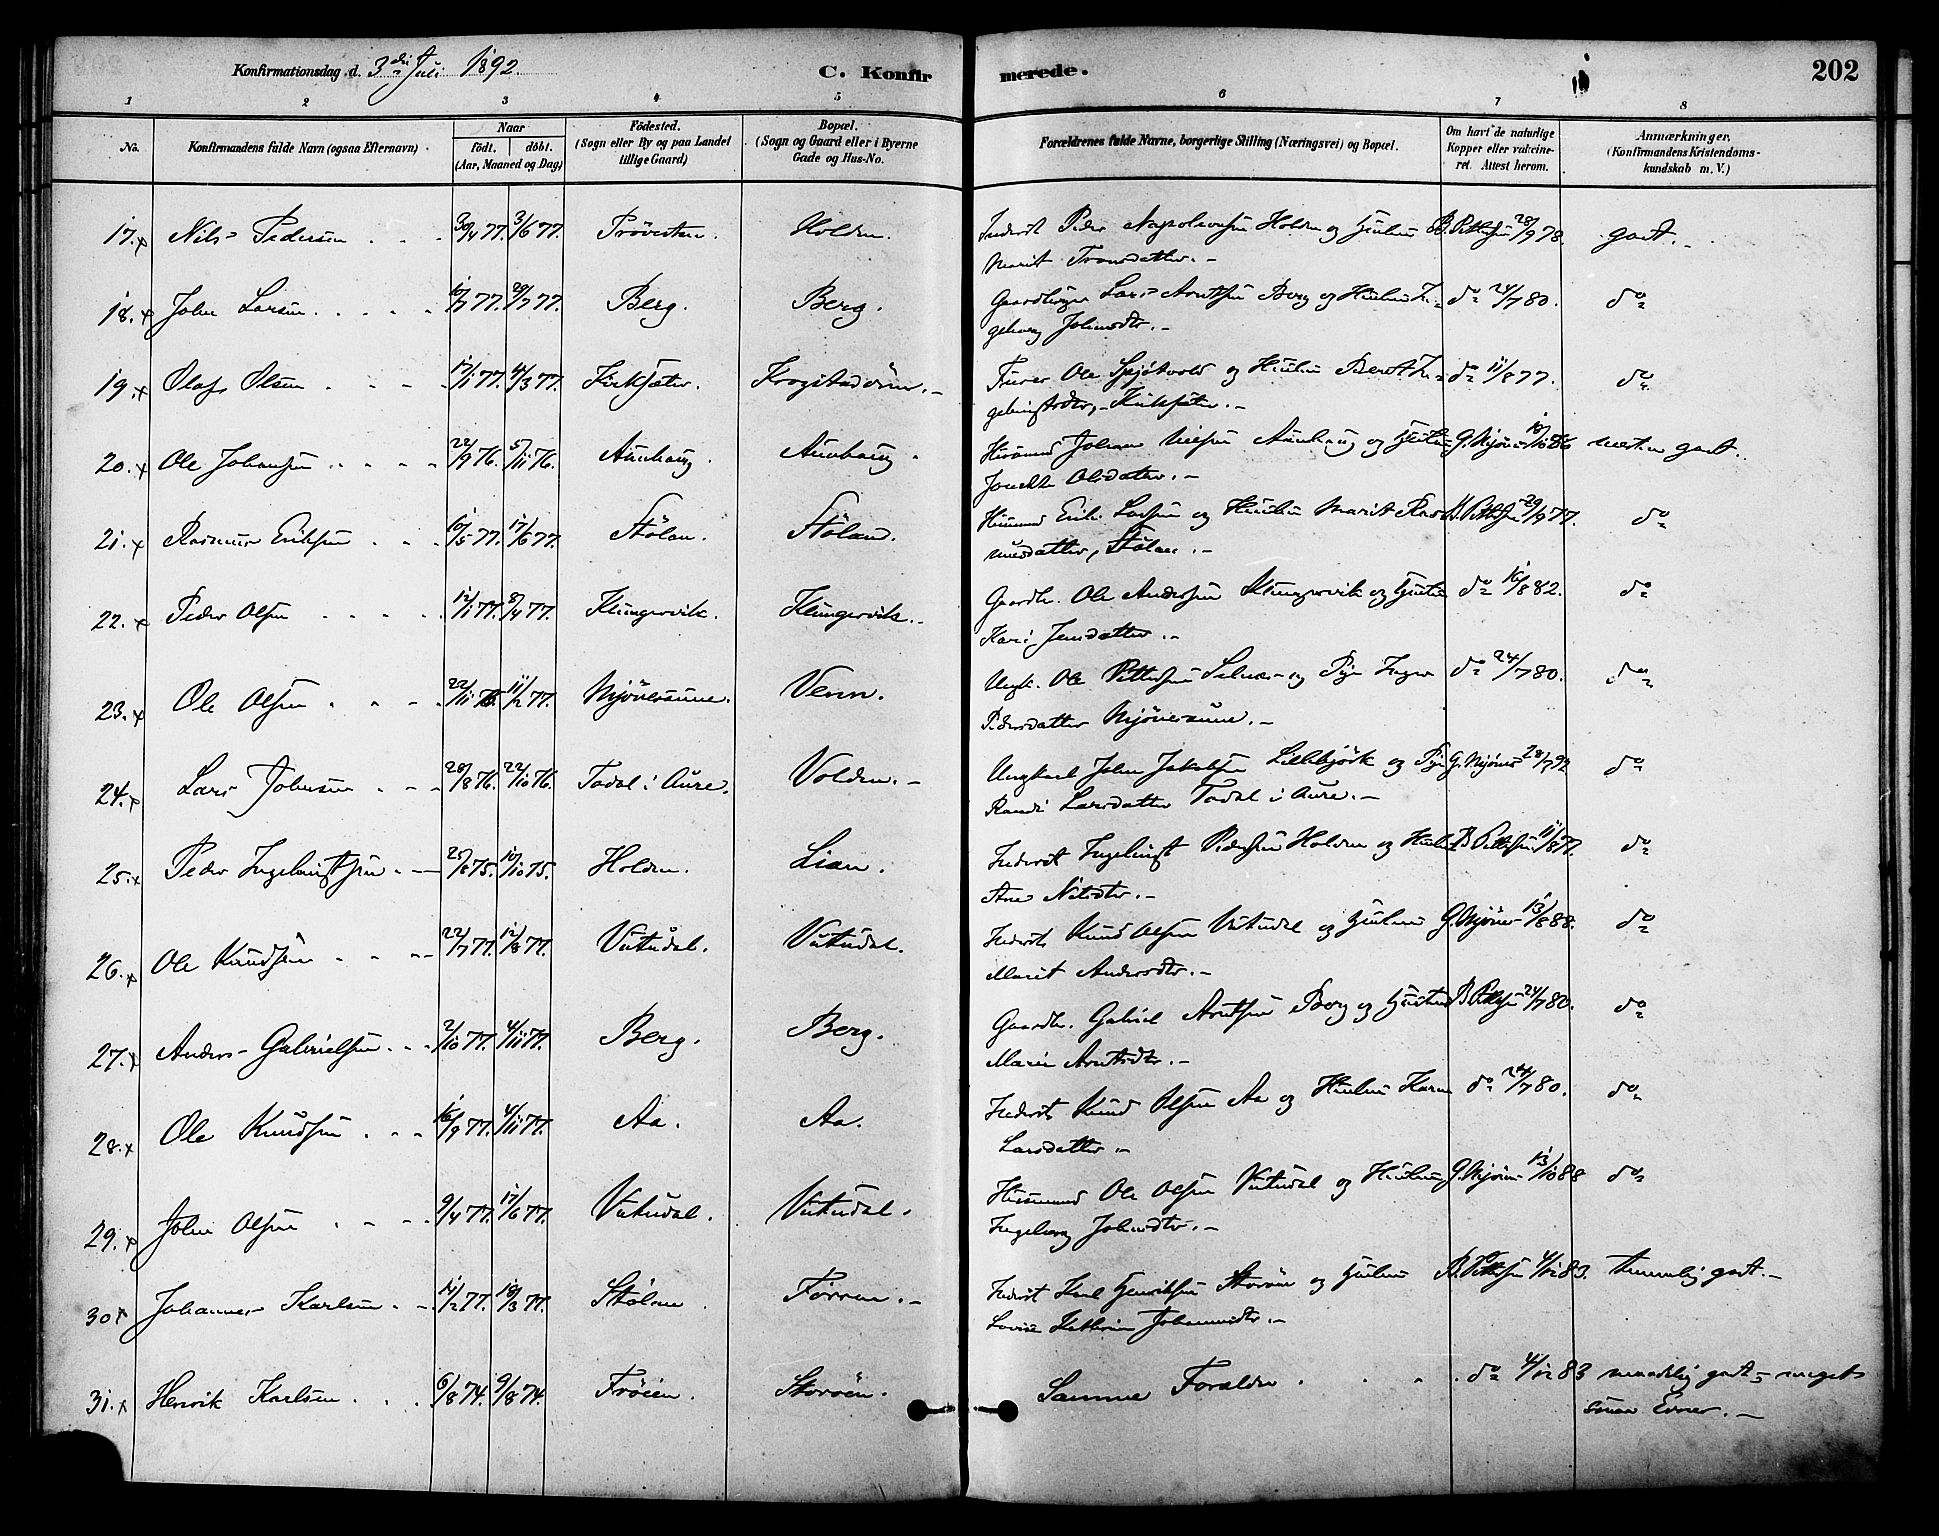 Konfirmationsdag d. 3die Juli 1892.
C. Konfirmerede.
202
1 2 3 4 5 6 7 8
No.
Konfirmandens fulde Navn (ogsaa Efternavn)
Naar
födt. döbt.
(Aar, Maaned og Dag)
Födested.
(Sogn eller By og paa Landet
tillige Gaard)
Bopæl.
(Sogn og Gaard eller i Byerne
Gade og Hus-No.
Forældrenes fulde Navne, borgerlige Stilling (Næringsvei) og Bopæl.
Om havt de naturlige
Kopper eller vakcine-
ret. Attest herom.
Anmærkninger,
(Konfirmandens Kristendoms-
kundskab m. V.)
17. x Nils Pedersen 30/4 77. 3/6 77. Holden. Inderst Peder Holden og Hustru B. Pettersen 28/9 78. godt.
Marit
18. x John Larsen 29/7 77. Berg. Berg. Gaardbruger Lars Arntsen Berg og Hustru In- do 24/7 80. do
geborg Johnsdtr.
19. x Olaf Olsen 17/1 77. 4/3 77. Kirksæter. Ole Spjøtvold og Hustru Berit In- do 11/8 77. do
Kirksæter.
20. x Ole Johansen 22/9 76. 5/11 76. Aunhaug. Aunhaug. Husmand Johan Nilsen Aunhaug og Hustru G. Mjönes 86 næsten godt.
Olsdatter.
21. x Rasmus Eriksen 17/6 77. Stölan. Stölan. Husmand Erik Larsen og Hustru Marit Ras- B. Pettersen 29/9 77. do
musdatter, Stölan.
22. x Peder Olsen 12/1 77. 8/4 77. Klungervik. Klungervik. Gaardbr. Ole Andersen Klungervik og Hustru do 16/8 82. do
Kari Jensdatter.
23. x Ole Olsen 22/11 76. 11/2 77. Mjönesaune. Venn. Ungk. Ole Pettersen Selnes og Pige Inger do 24/7 80. do
Pedersdatter Mjönesaune.
24. x Lars Johnsen 28/8 76. 22/10 76. Todal i Aure. Volden. Ungkarl John Jakobsen Lillebjörk og Pige G. Mjönes 28/7 92 do
Randi Larsdatter Todal i Aure.
25. x Peder Ingebrigtsen 25/8 75. 10/10 75. Holden. Lian. Inderst Ingebrigt Pedersen Holden og Hustru B. Pettersen 11/8 77. do
Ane Nilsdtr.
26. x Ole Knudsen 22/7 77. 12/8 77. Vutudal. Vutudal. Inderst Knud Olsen Vutudal og Hustru G. Mjönes 13/8 88. do
Marit Andersdtr.
27. x Anders Gabrielsen 2/10 77. 4/11 77. Berg. Berg. Gaardbr. Gabriel Arntsen Berg og Hustru B. Pettersen 24/7 80. do
Marie Arntsdtr.
28. x Ole Knudsen 16/9 77. 4/11 77. Aa. Aa. Inderst Knud Olsen Aa og Hustru Karen do 24/7 80. do
Larsdatter
29. x John Olsen 9/4 77. 17/6 77. Vutudal. Vutudal. Husmand Ole Olsen Vutudal og Hustru G. Mjönes 13/10 88 do
Ingeborg Johnsdtr.
30 x Johannes Karlsen 77. 18/3 77. Stölan Inderst Karl Henriksen Storöen og Hustru B. Pettersen 4/12 83. temmelig godt.
Lovise Kathrine Johannesdtr.
31. x Henrik Karlsen. 6/8 74. 9/8 74. Fröien. Storöen. Samme Forældre do 4/12 83 maadelig godt, meget
smaa Evner.